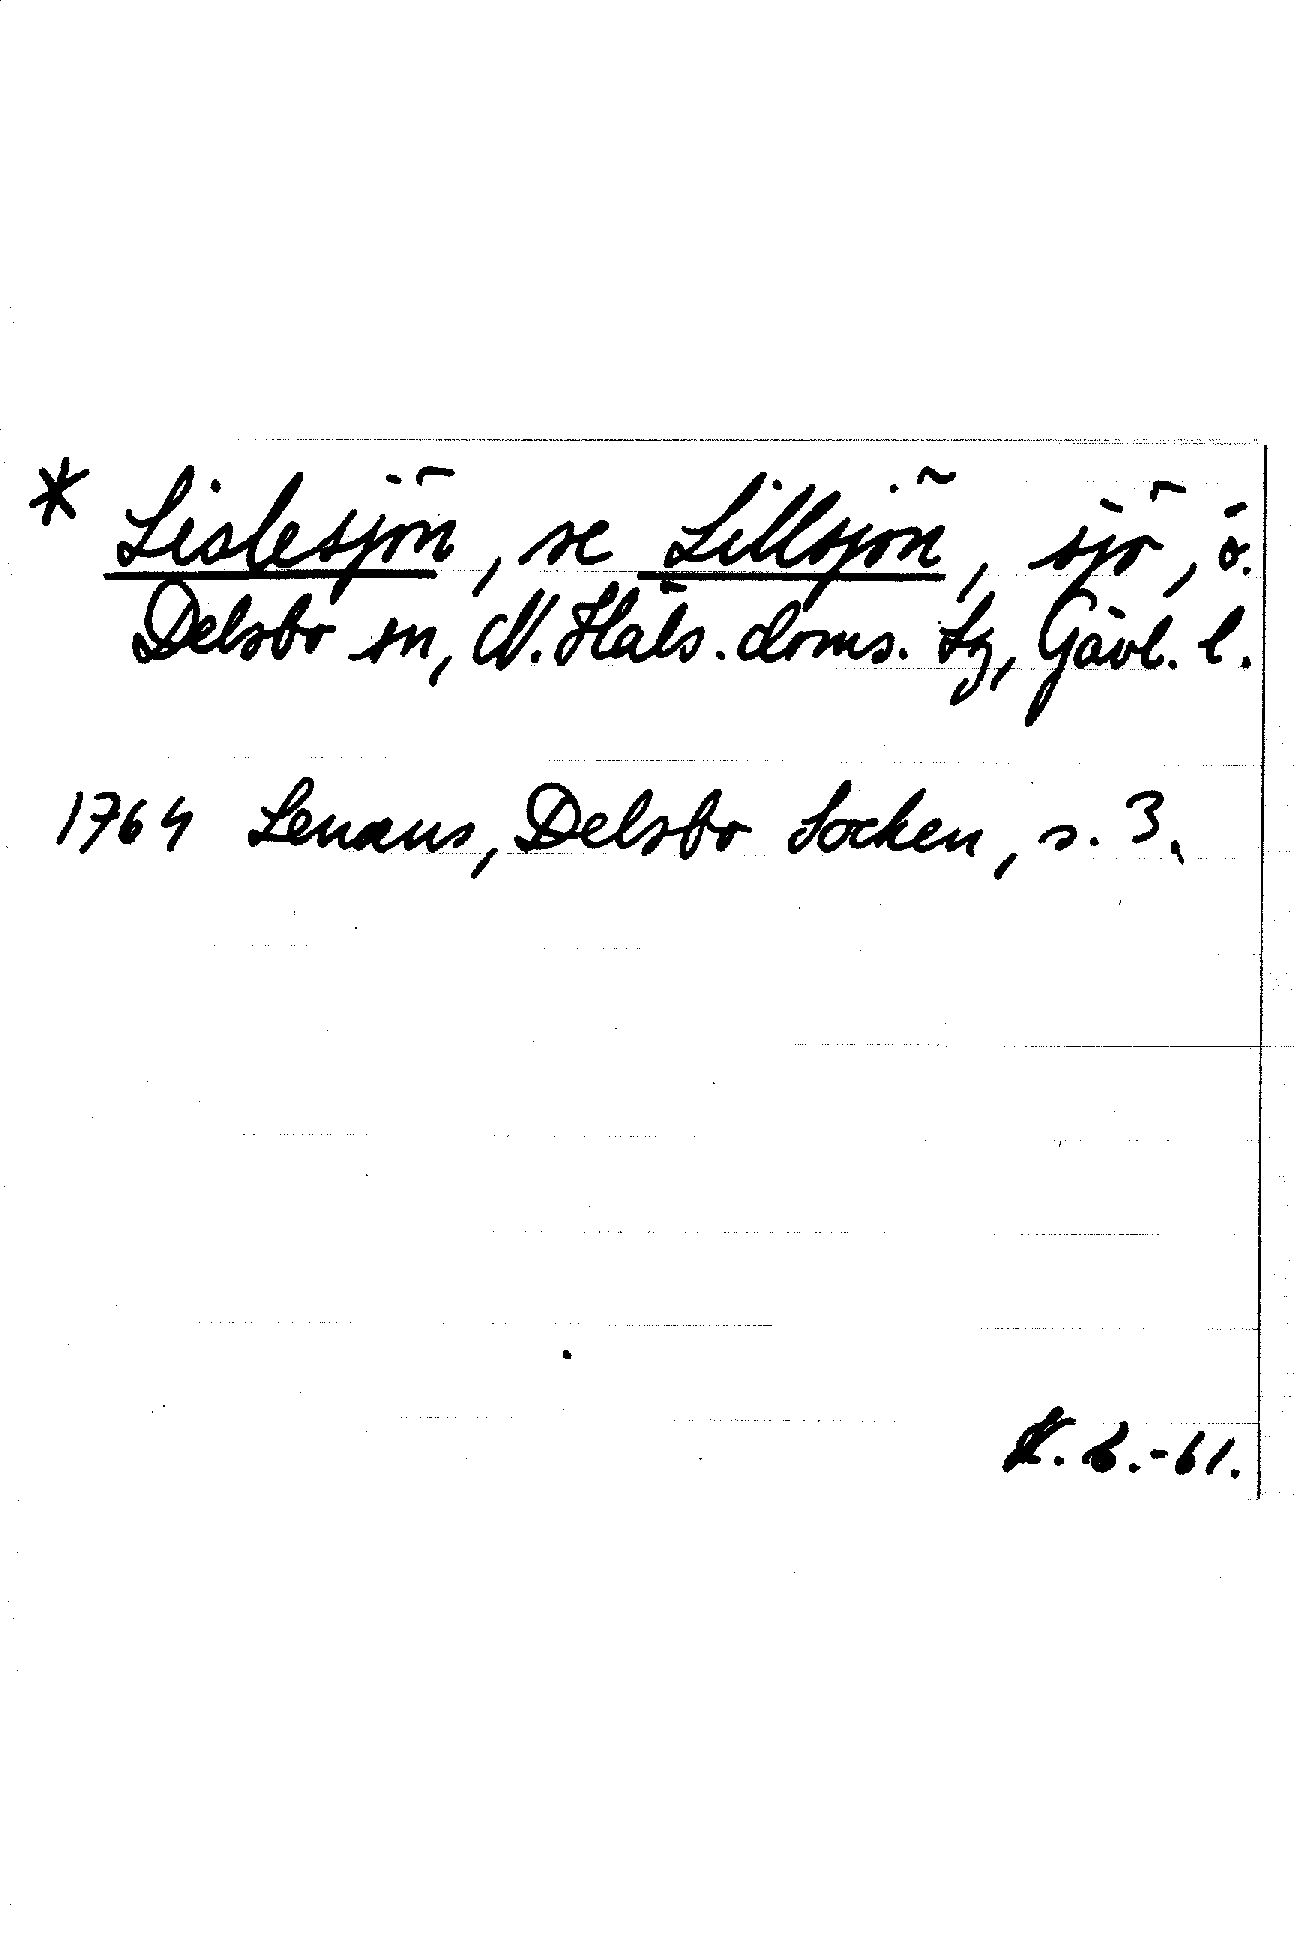 * Lislesjön, se Lillsjön, sjö, ö.
Delsbo sn, N. Häls. doms. tg, Gävl. l.
1764 Lenæus, Delsbo Socken, s. 3.
K. G. -61.